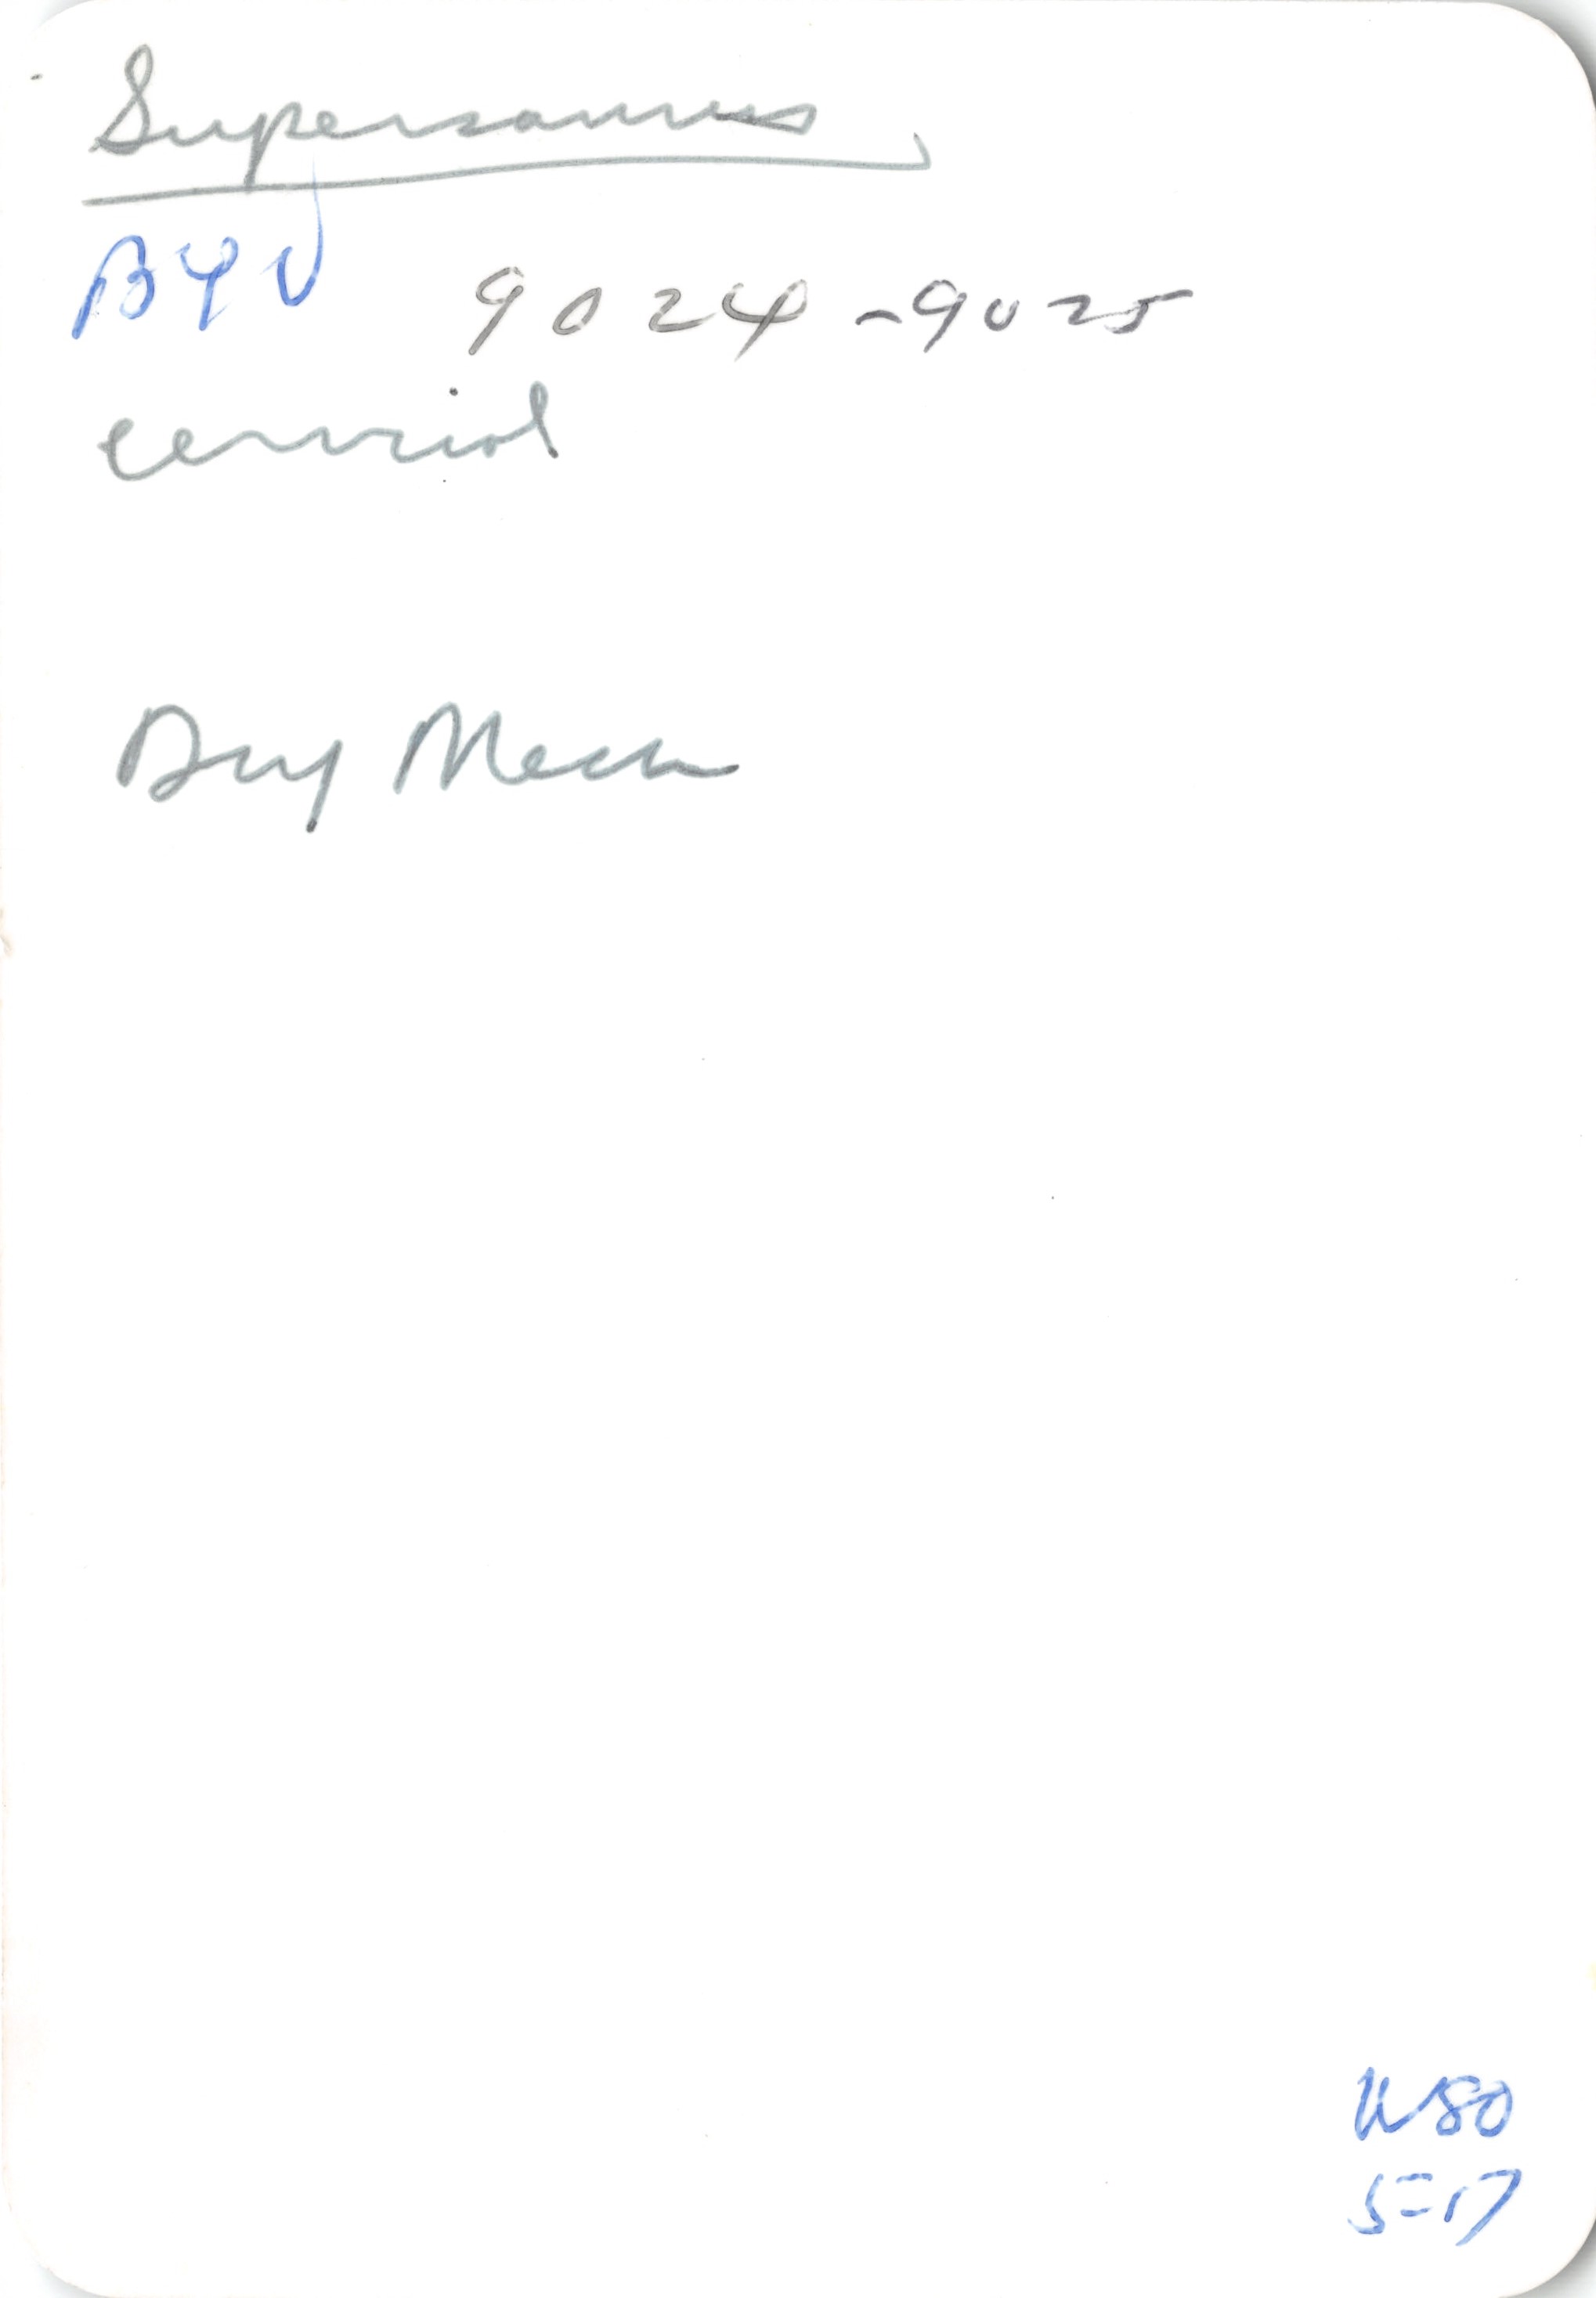 Supersaurus
BYU 9024-9025
cervical
Dry Mesa
W80
5=17